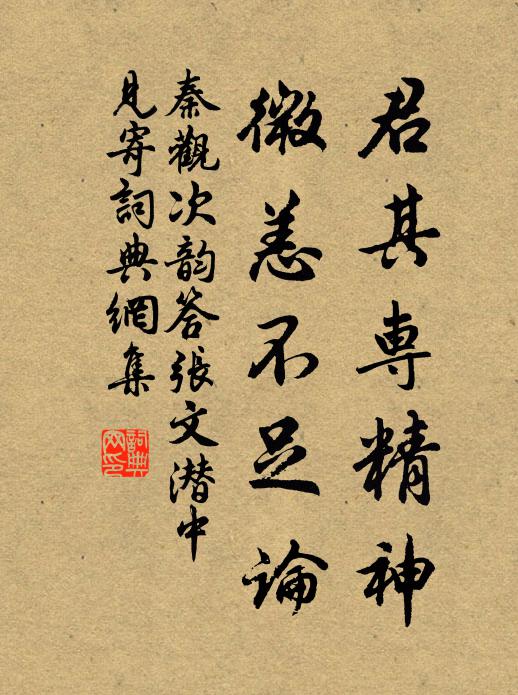 君其専精神
微恙不足論
秦觀次韵答張文潜中
見寄詞典網集
詞典网印